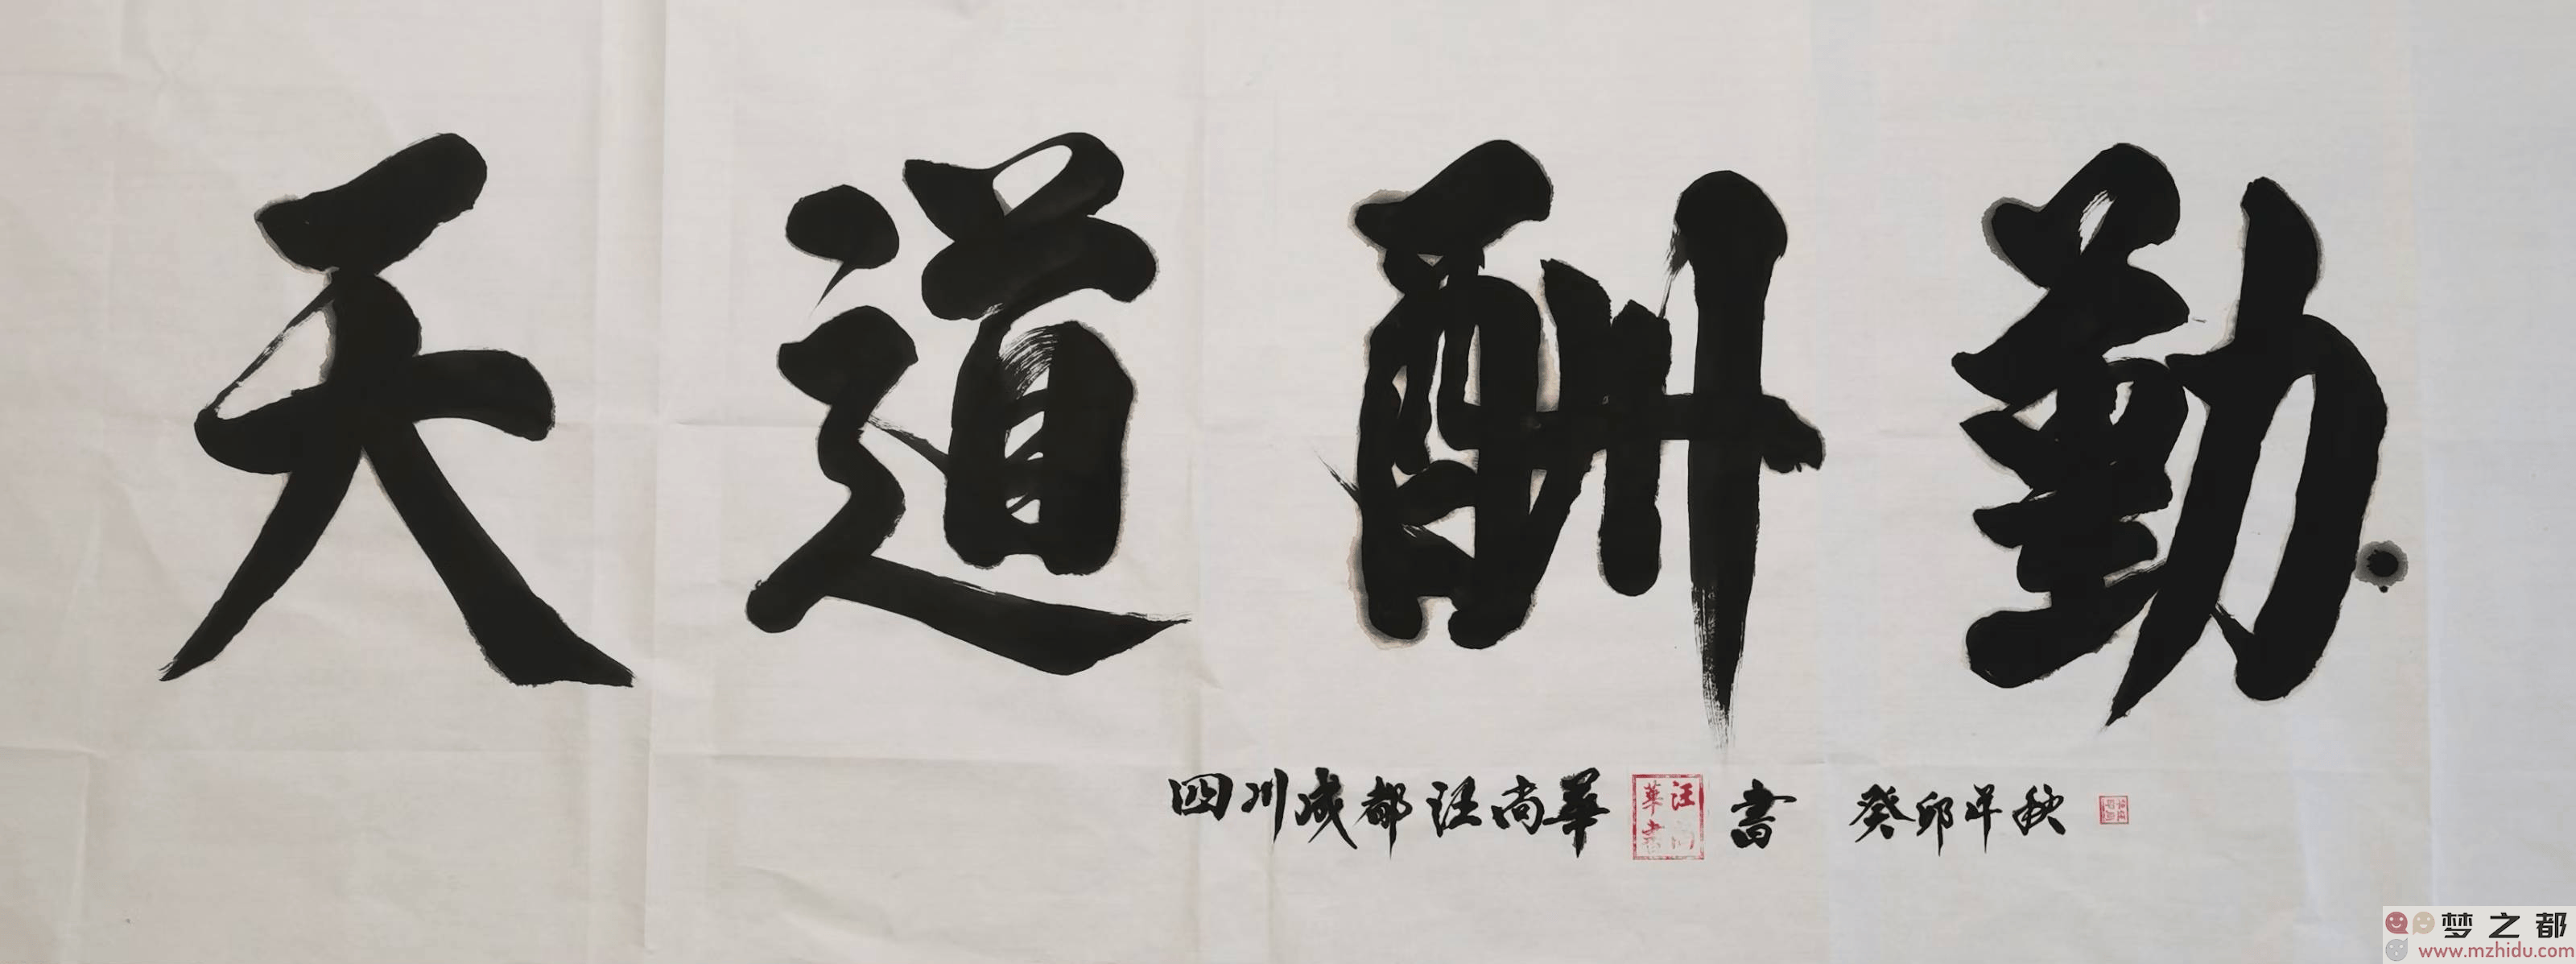 天道酬勤
四川成都汪尚華 書 癸卯年秋
汪尚華書
梦之都
www.mzhidu.com